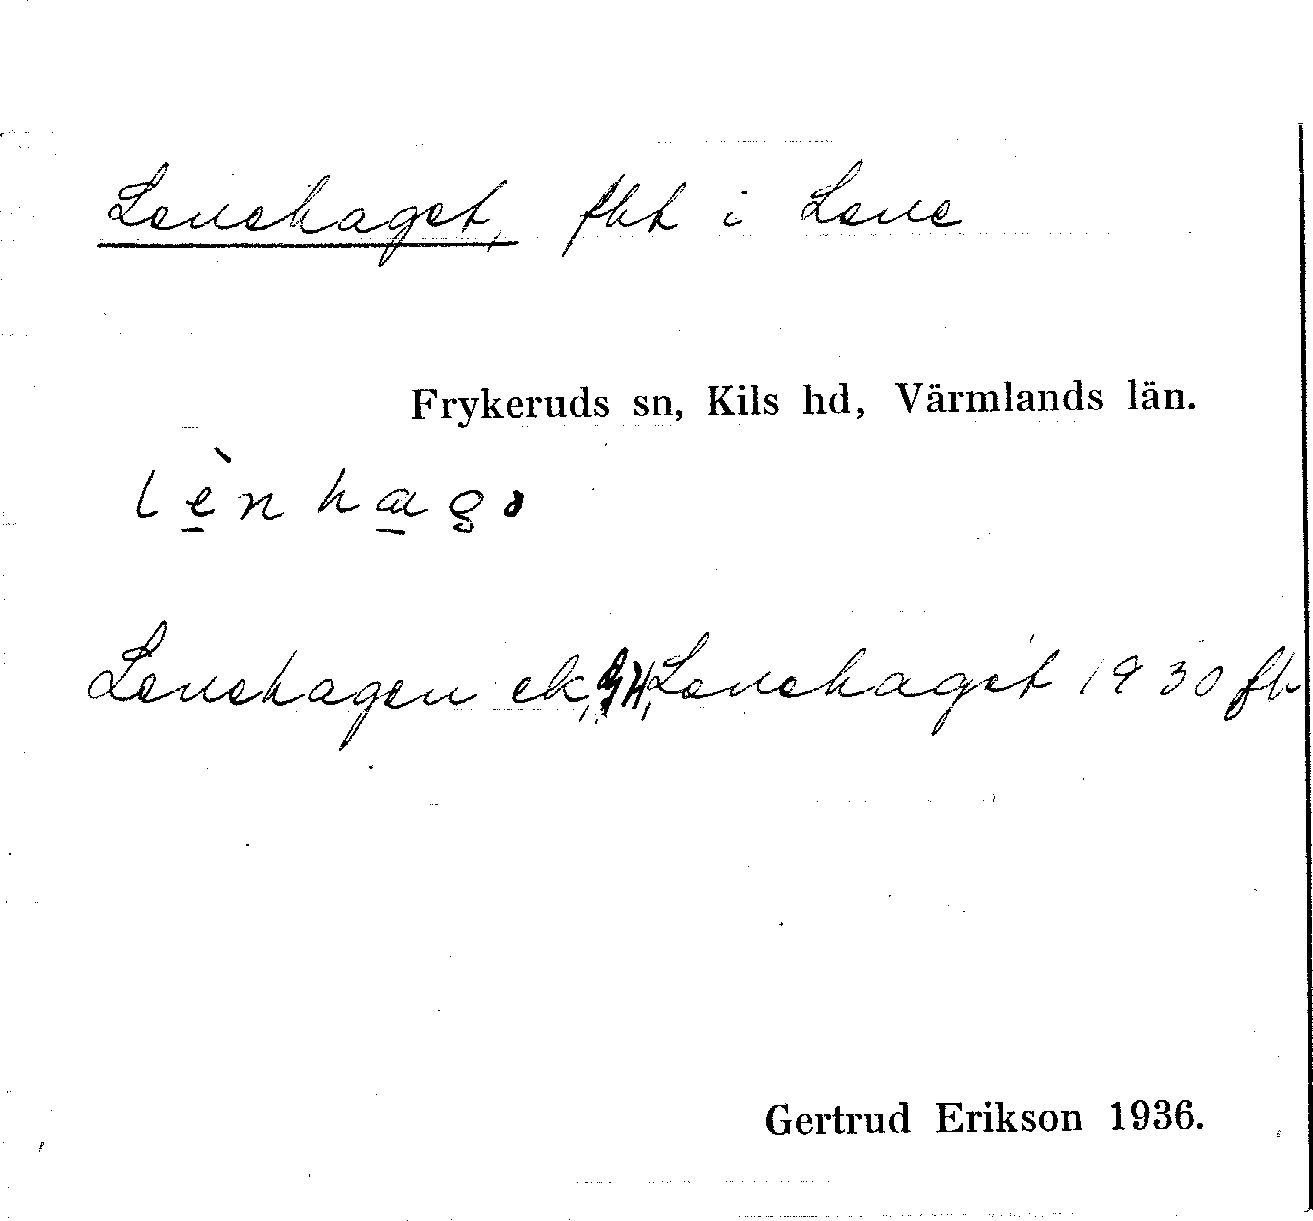 Lenehaget, fbt i Lene
Frykeruds sn, Kils hd, Värmlands län.
lènhagə
Lenehagen ek, GH, Lenehaget 1930 fb
Gertrud Erikson 1936.